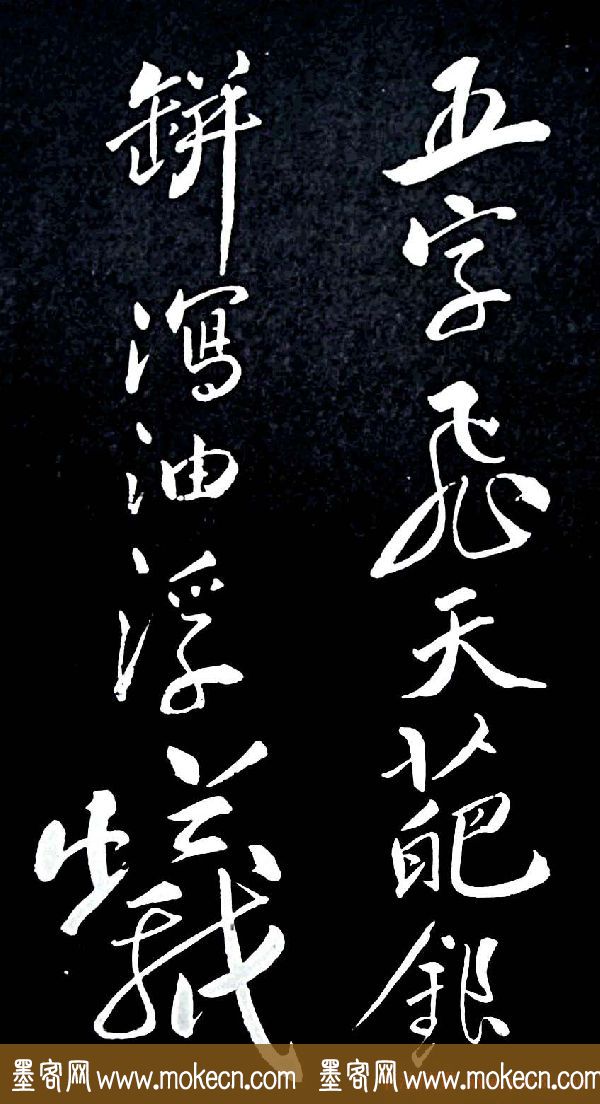 五字飛天葩銀
缾瀉油浮蟻
墨客网 www.mokecn.com 墨客网 www.mokecn.com